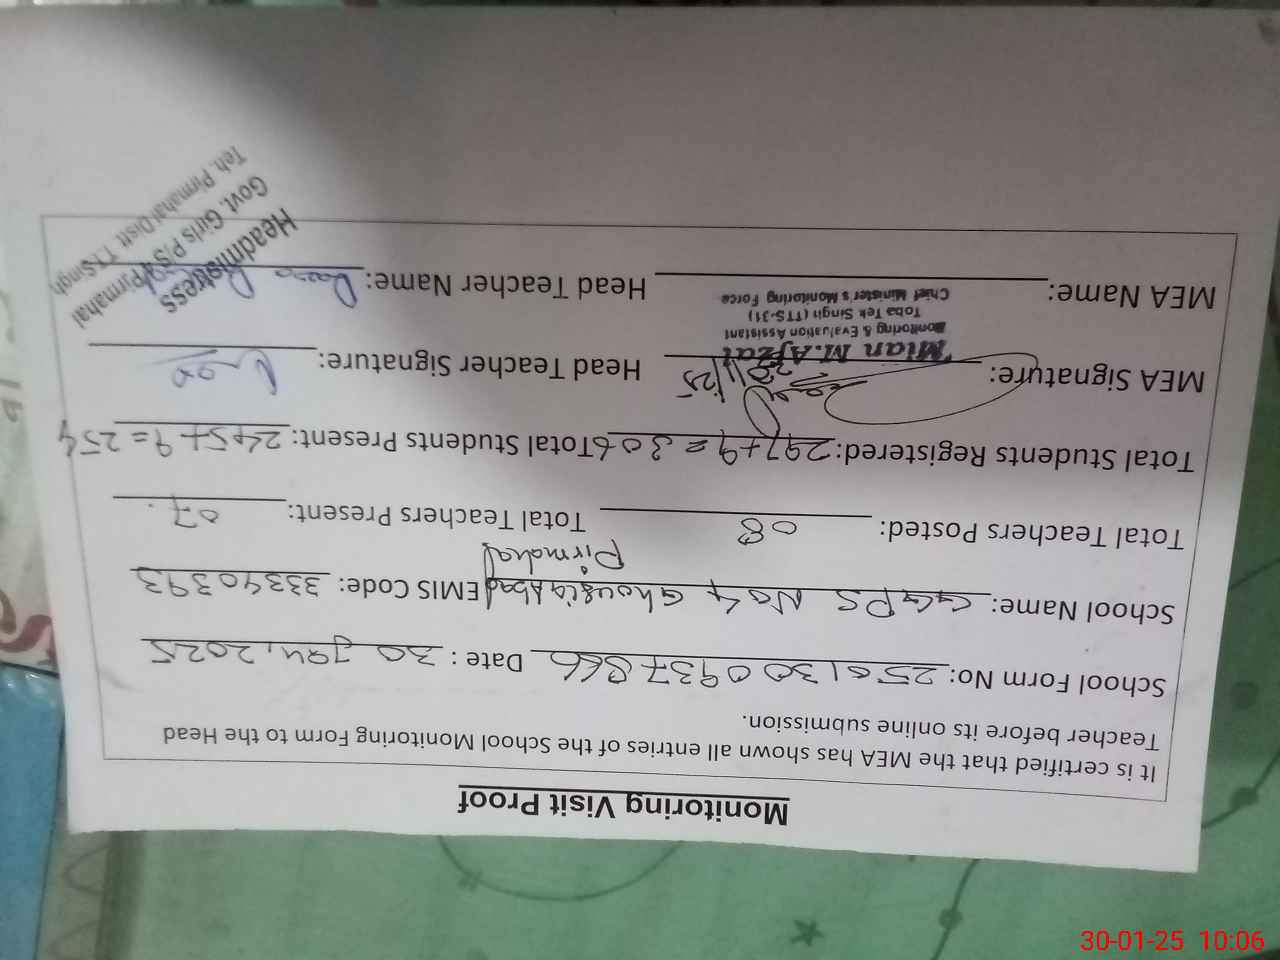 Monitoring Visit Proof
It is certified that the MEA has shown all entries of the School Monitoring Form to the Head
Teacher before its online submission.
School Form No: 250130 0937866 Date : 30 Jan, 2025
School Name: GGPS No 4 Ghousia Abad EMIS Code: 33340393
Pirmahal
Total Teachers Posted: 08 Total Teachers Present: 07
Total Students Registered: 297+9 = 306 Total Students Present: 245+9 = 254
MEA Signature: Head Teacher Signature:
Mian M.Afzal
Monitoring & Evaluation Assistant
Toba Tek Singh (TTS-31)
Chief Minister's Monitoring Force
MEA Name: Head Teacher Name:
Headmistress
Govt. Girls P/S 4 Pirmahal
Teh. Pirmahal Distt. T.T.Singh
30-01-25 10:06